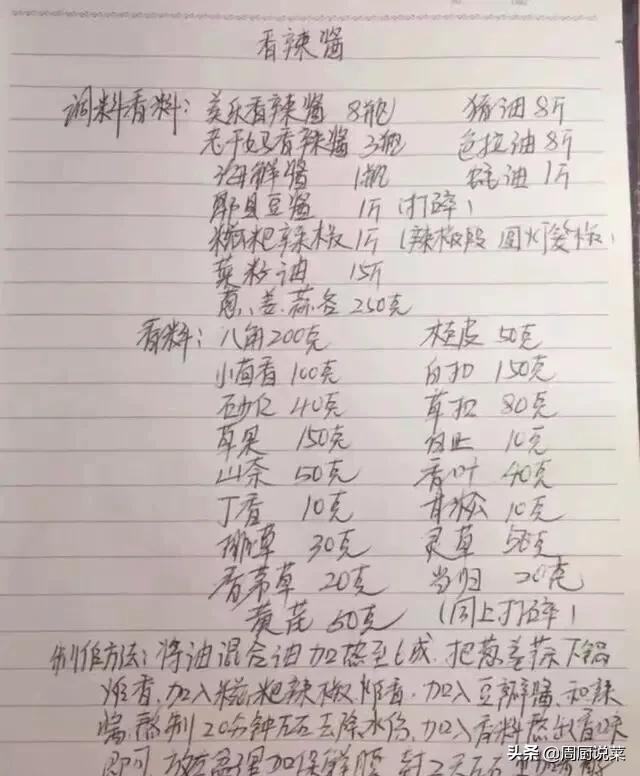 香辣酱
调料香料: 美乐香辣酱 8瓶 猪油 8斤
老干妈香辣酱 3瓶 色拉油 8斤
海鲜酱 1瓶 蚝油 1斤
郫县豆酱 1斤 (打碎)
糍粑辣椒 1斤 (辣椒段
菜籽油 15斤
葱、姜、蒜各250克
香料: 八角200克 桂皮 50克
小茴香 100克 白扣 150克
砂仁 40克 草扣 80克
草果 150克 白止 10克
山奈 50克 香叶 40克
丁香 10克 甘松 10克
排草 30克 灵草 50克
香茅草 20克 当归 20克
黄芪 50克 (同上打碎)
制作方法: 将油混合油加热至6成, 把葱姜蒜下锅
炸香, 加入糍粑辣椒炸香, 加入豆瓣酱, 和辣
酱, 熬制20分钟左右去除水份, 加入香料熬出香味
即可 加保鲜膜 封2天左右
头条 @周厨说菜